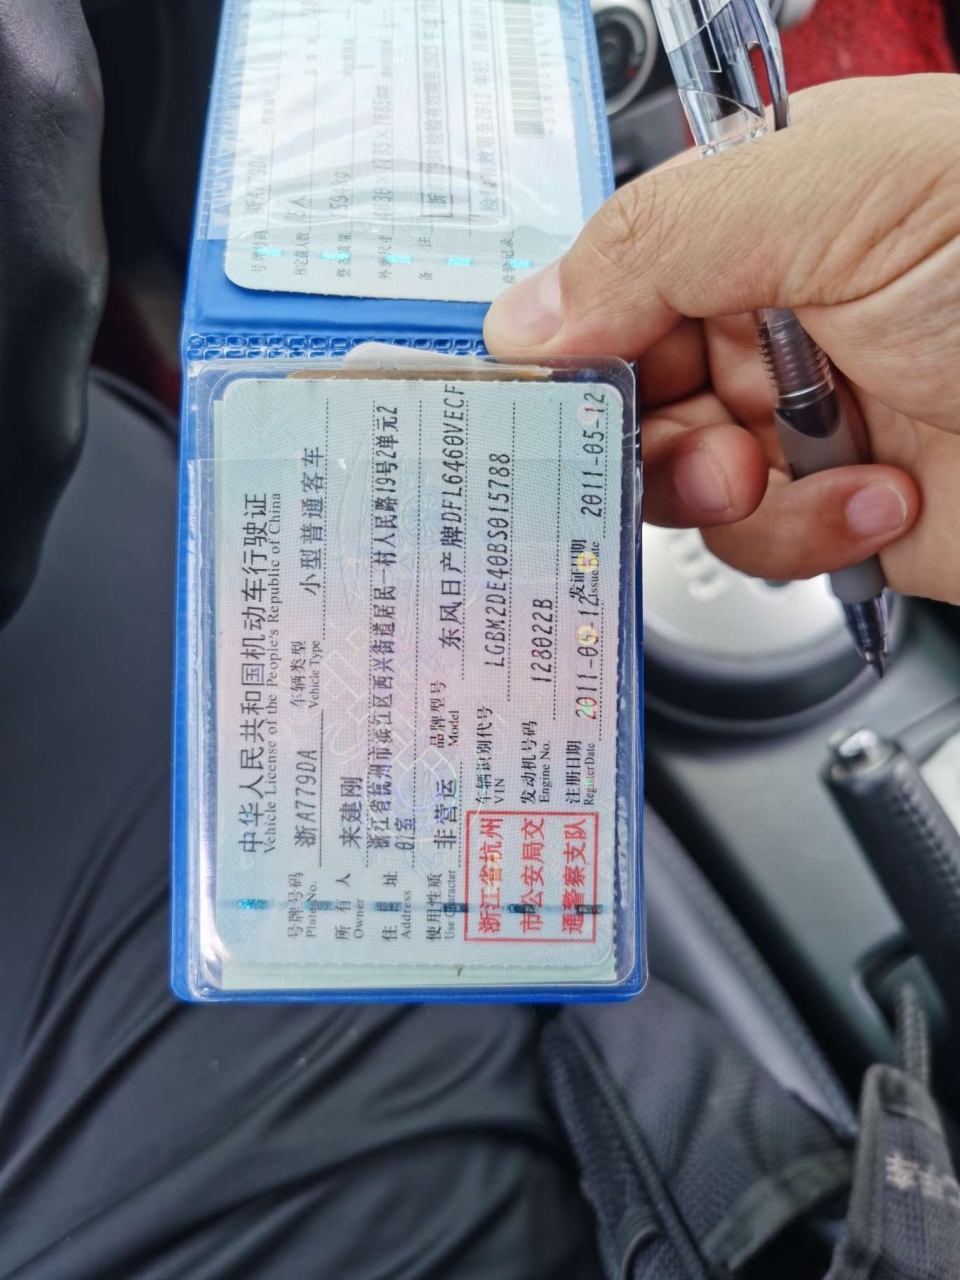 中华人民共和国机动车行驶证
Vehicle License of the People's Republic of China
号牌号码 浙A779DA 车辆类型 小型普通客车
Plate No. Vehicle Type
所有人 来建刚
Owner
住址 浙江省杭州市滨江区西兴街道居民一村人民路19号2单元2
Address 01室
使用性质 非营运 品牌型号 东风日产牌DFL6460VECF
Use Character Model
浙江省杭州
市公安局交
通警察支队
车辆识别代号 LGBM2DE40BS015788
VIN
发动机号码 128022B
Engine No.
注册日期 2011-05-12 发证日期 2011-05-12
Register Date Issue Date
号牌号码 浙A779DA
核定载人数
整备质量
外廓尺寸
备注
检验记录